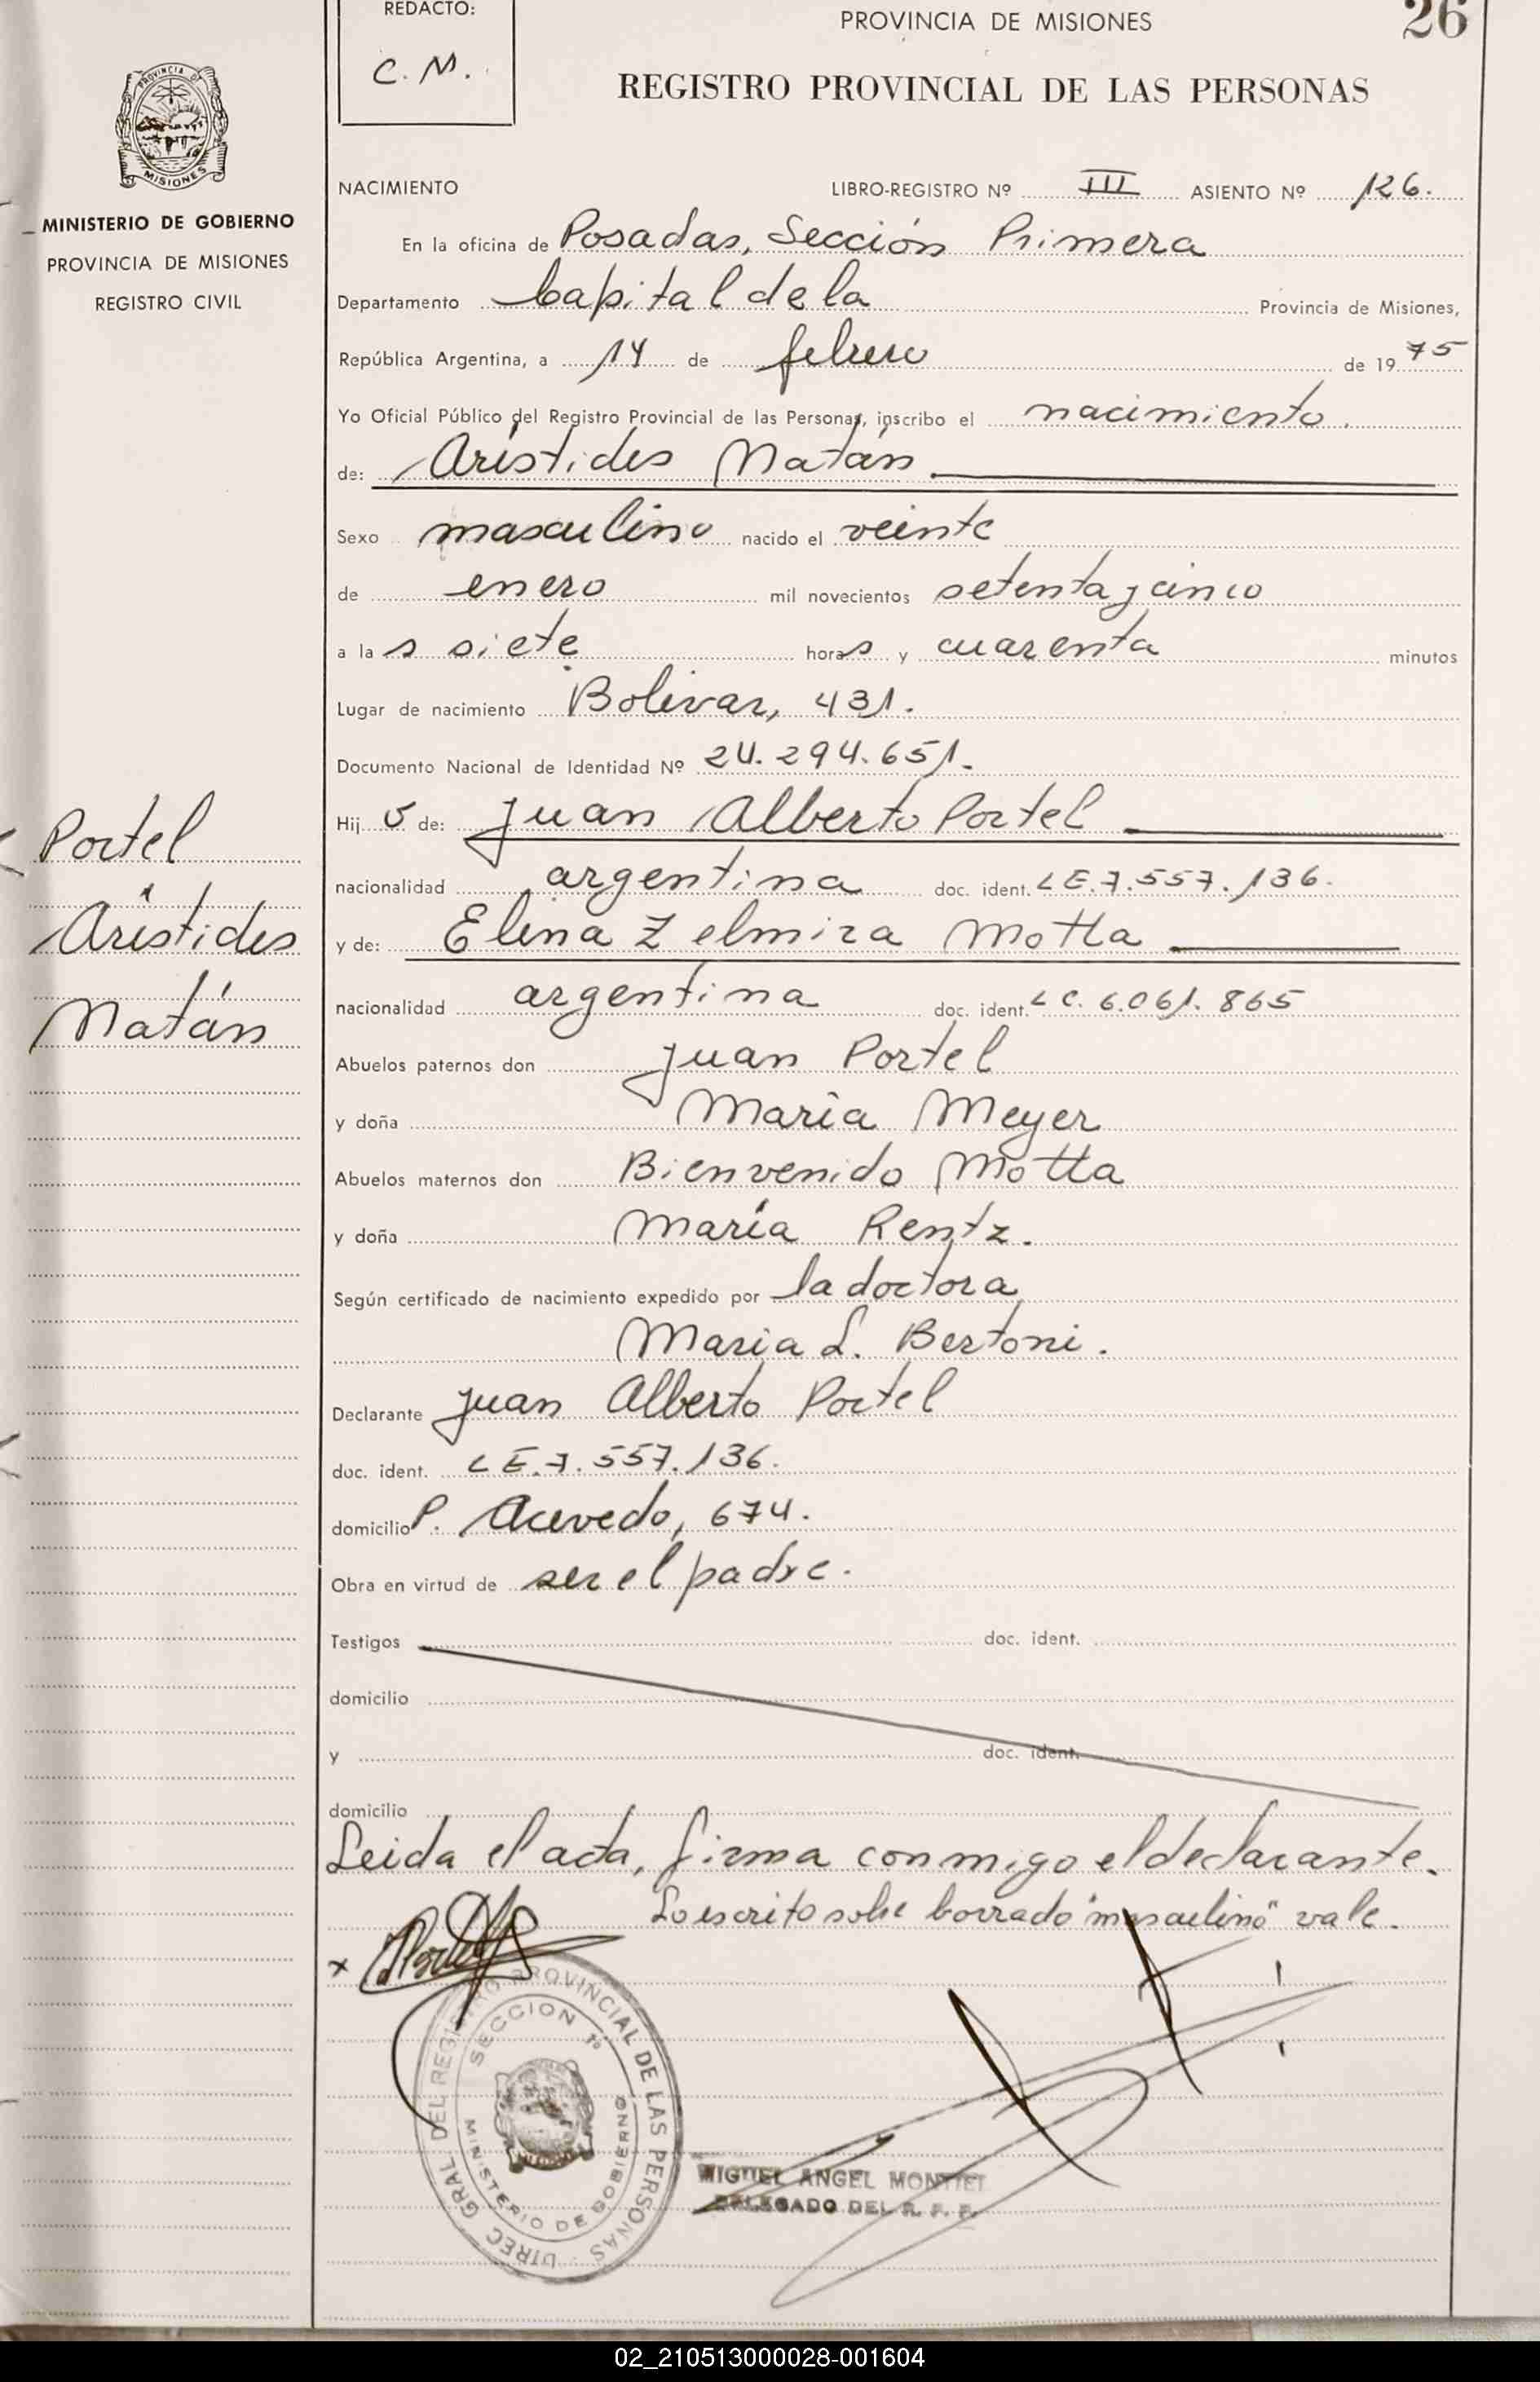 REDACTO:
C. M.
PROVINCIA DE MISIONES
26
REGISTRO PROVINCIAL DE LAS PERSONAS
PROVINCIA DE
MISIONES
MINISTERIO DE GOBIERNO
PROVINCIA DE MISIONES
REGISTRO CIVIL
NACIMIENTO LIBRO-REGISTRO Nº III ASIENTO Nº 126.
En la oficina de Posadas, Sección Primera
Departamento Capital de la Provincia de Misiones,
República Argentina, a 14 de febrero de 1975
Yo Oficial Público del Registro Provincial de las Personas, inscribo el nacimiento.
de: Arístides Natán
Sexo masculino nacido el veinte
de enero mil novecientos setenta y cinco
a las siete horas y cuarenta minutos
Lugar de nacimiento Bolivar, 431.
Documento Nacional de Identidad Nº 24.294.651.
Hijo de: Juan Alberto Portel
nacionalidad argentina doc. ident. LE. 7.557.136.
y de: Elina Zelmira Motta
nacionalidad argentina doc. ident. LC. 6.061.865
Abuelos paternos don Juan Portel
y doña María Meyer
Abuelos maternos don Bienvenido Motta
y doña María Rentz.
Según certificado de nacimiento expedido por la doctora
Maria L. Bertoni.
Declarante Juan Alberto Portel
doc. ident. LE. 7.557.136.
domicilio P. Acevedo, 674.
Obra en virtud de ser el padre.
Testigos doc. ident.
domicilio
y doc. ident.
domicilio
Leida el acta, firma conmigo el declarante.
Lo escrito sobre borrado "masculino" vale.
x
Portel
Arístides
Natán
DIREC. GRAL. DEL REGISTRO PROVINCIAL DE LAS PERSONAS
SECCION 1º
MINISTERIO DE GOBIERNO
MIGUEL ANGEL MONTIEL
DELEGADO DEL R. P. P.
02_210513000028-001604